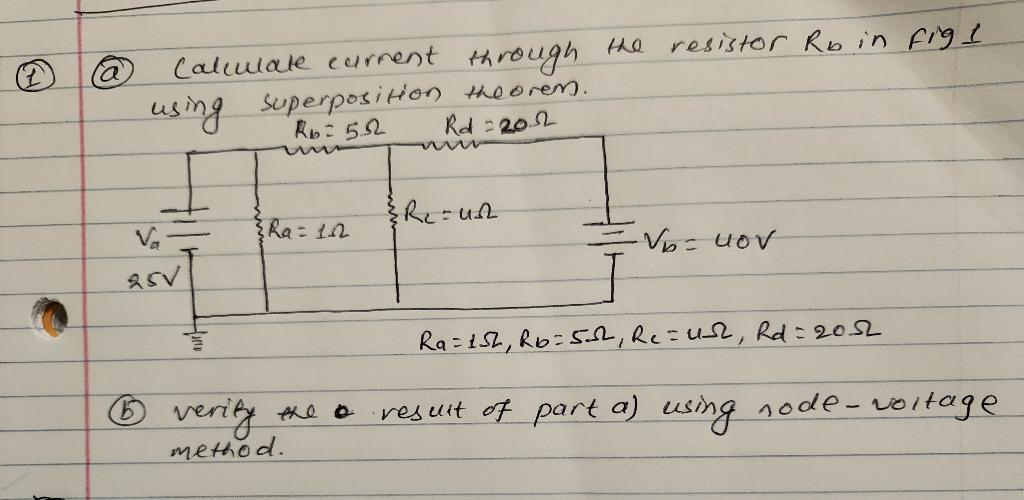 ① ⓐ Calculate current through the resistor Rb in fig 1
using superposition theorem.
Rb = 5Ω Rd = 20Ω
Va
25V
Ra = 1Ω
Rc = 4Ω
Vb = 40V
Ra = 1Ω, Rb = 5Ω, Rc = 4Ω, Rd = 20Ω
ⓑ verify the result of part a) using node-voltage
method.